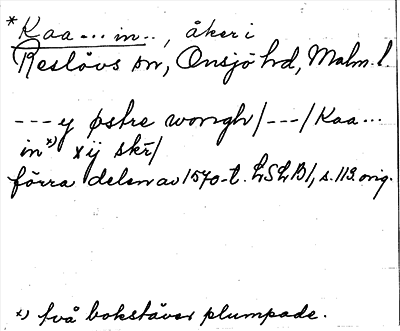 *Kaa...in.., åker i
Reslövs sn, Onsjö hd, Malm. l.
---y østre wongh/---/Kaa...
in*) xij skr/
förra delen av 1570-t. LSLB1, s. 113. orig.
*) två bokstäver plumpade.